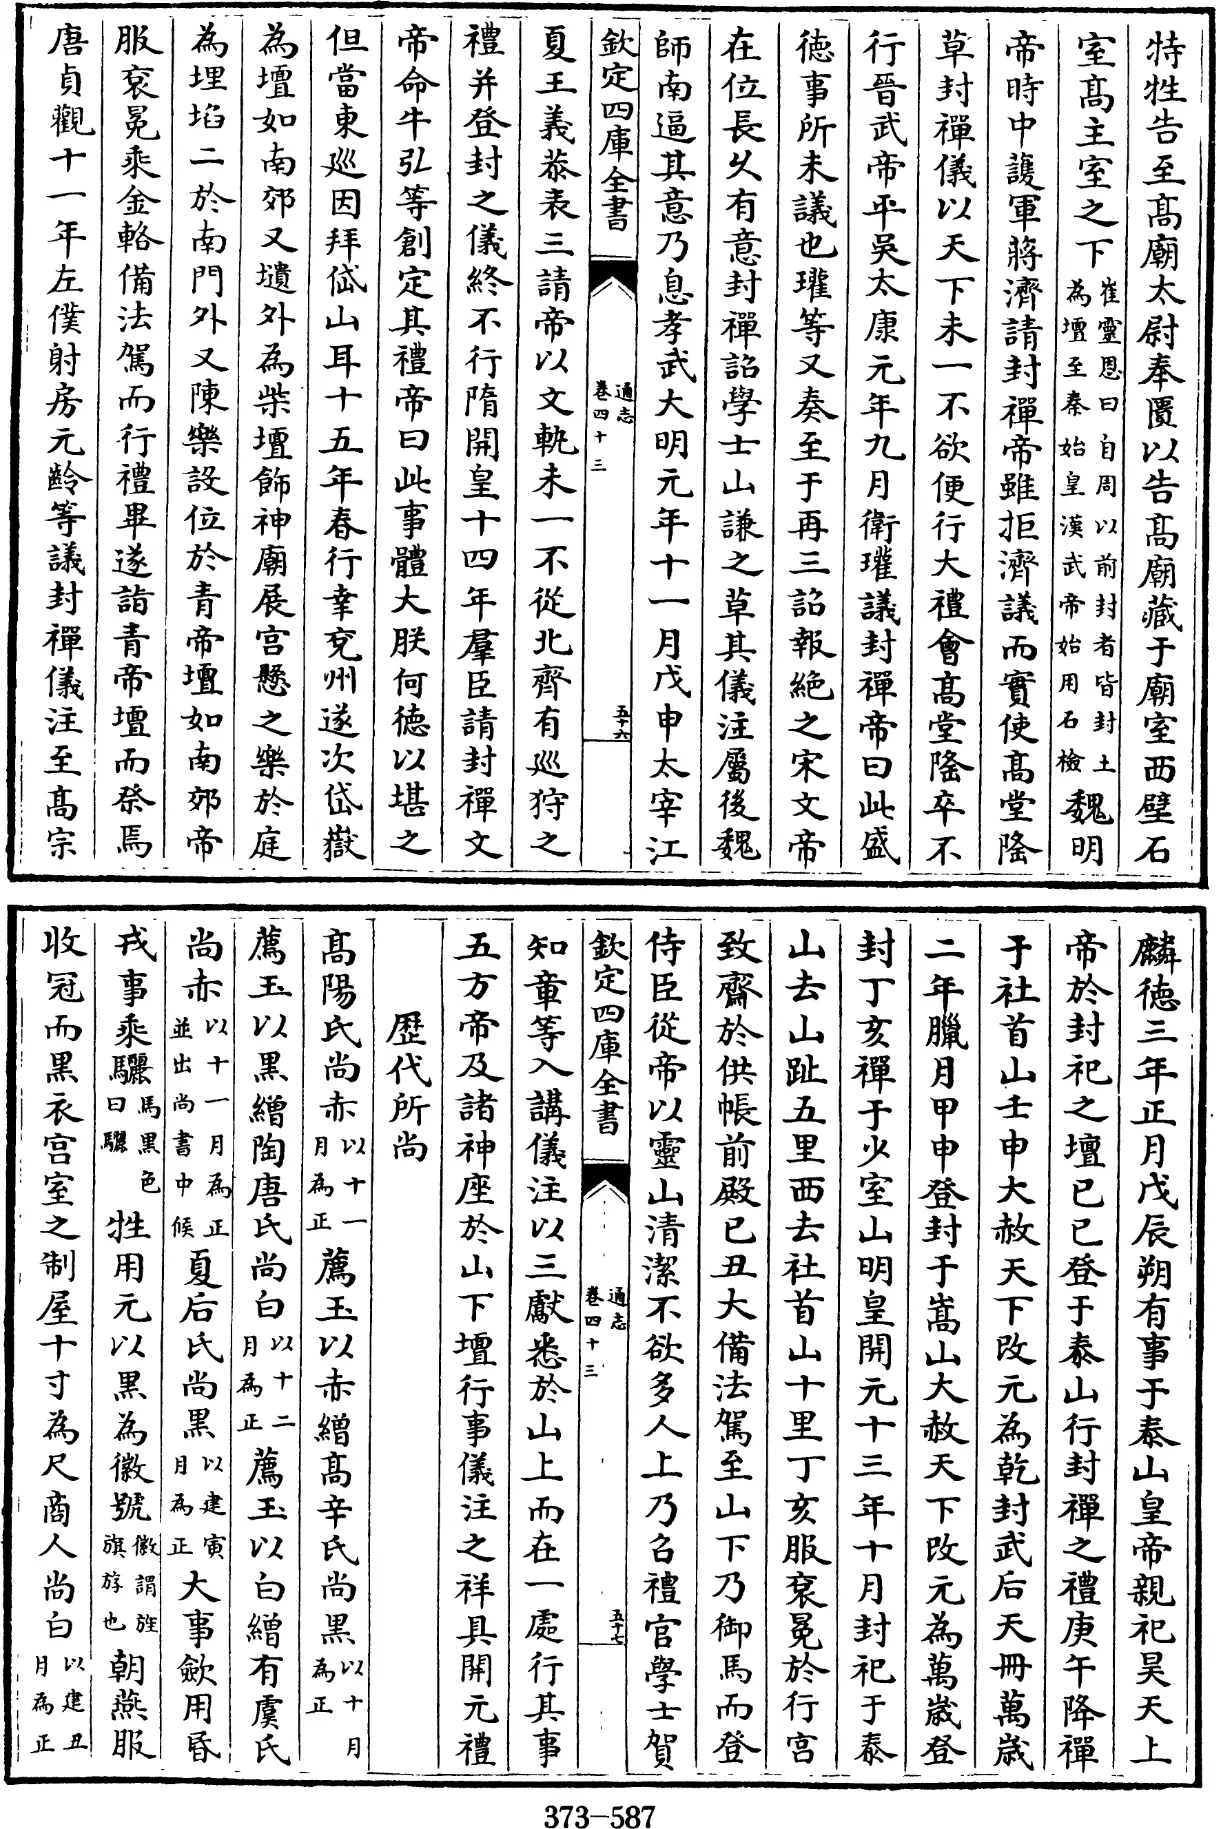 特牲告至高廟太尉奉匱以告高廟藏于廟室西壁石
室高主室之下崔靈恩曰自周以前封者皆封土為壇至秦始皇漢武帝始用石檢魏明
帝時中護軍蔣濟請封禪帝雖拒濟議而實使高堂隆
草封禪儀以天下未一不欲便行大禮會高堂隆卒不
行晉武帝平吳太康元年九月衛瓘議封禪帝曰此盛
徳事所未議也瓘等又奏至于再三詔報絶之宋文帝
在位長久有意封禪詔學士山謙之草其儀注屬後魏
師南逼其意乃息孝武大明元年十一月戊申太宰江
欽定四庫全書
通志
卷四十三
五十六
夏王義恭表三請帝以文軌未一不從北齊有廵狩之
禮并登封之儀終不行隋開皇十四年羣臣請封禪文
帝命牛弘等創定其禮帝曰此事體大朕何徳以堪之
但當東廵因拜岱山耳十五年春行幸兖州遂次岱嶽
為壇如南郊又壝外為柴壇飾神廟展宫懸之樂於庭
為埋埳二於南門外又陳樂設位於青帝壇如南郊帝
服衮冕乘金輅備法駕而行禮畢遂詣青帝壇而祭焉
唐貞觀十一年左僕射房元齡等議封禪儀注至高宗
麟徳三年正月戊辰朔有事于泰山皇帝親祀昊天上
帝於封祀之壇已巳登于泰山行封禪之禮庚午降禪
于社首山壬申大赦天下改元為乾封武后天冊萬歳
二年臘月甲申登封于嵩山大赦天下改元為萬歳登
封丁亥禪于少室山明皇開元十三年十月封祀于泰
山去山趾五里西去社首山十里丁亥服衮冕於行宫
致齋於供帳前殿已丑大備法駕至山下乃御馬而登
侍臣從帝以靈山清潔不欲多人上乃召禮官學士賀
欽定四庫全書
通志
卷四十三
五十七
知章等入講儀注以三獻悉於山上而在一處行其事
五方帝及諸神座於山下壇行事儀注之祥具開元禮
歴代所尚
高陽氏尚赤以十一月為正薦玉以赤繒高辛氏尚黑以十月為正
薦玉以黑繒陶唐氏尚白以十二月為正薦玉以白繒有虞氏
尚赤以十一月為正並出尚書中候夏后氏尚黑以建寅月為正大事歛用昏
戎事乘驪馬黑色曰驪牲用元以黑為徽號徽謂旌旗斿也朝燕服
收冠而黑衣宫室之制屋十寸為尺商人尚白以建丑月為正
373-587